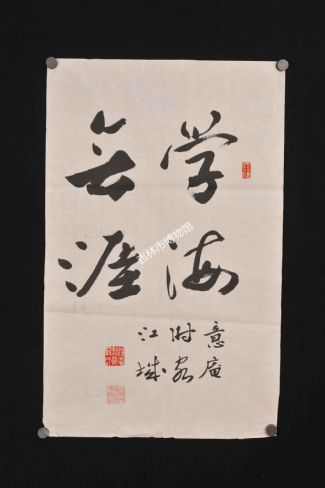 学海
无涯
意庵
时客
江城
吉林市博物馆